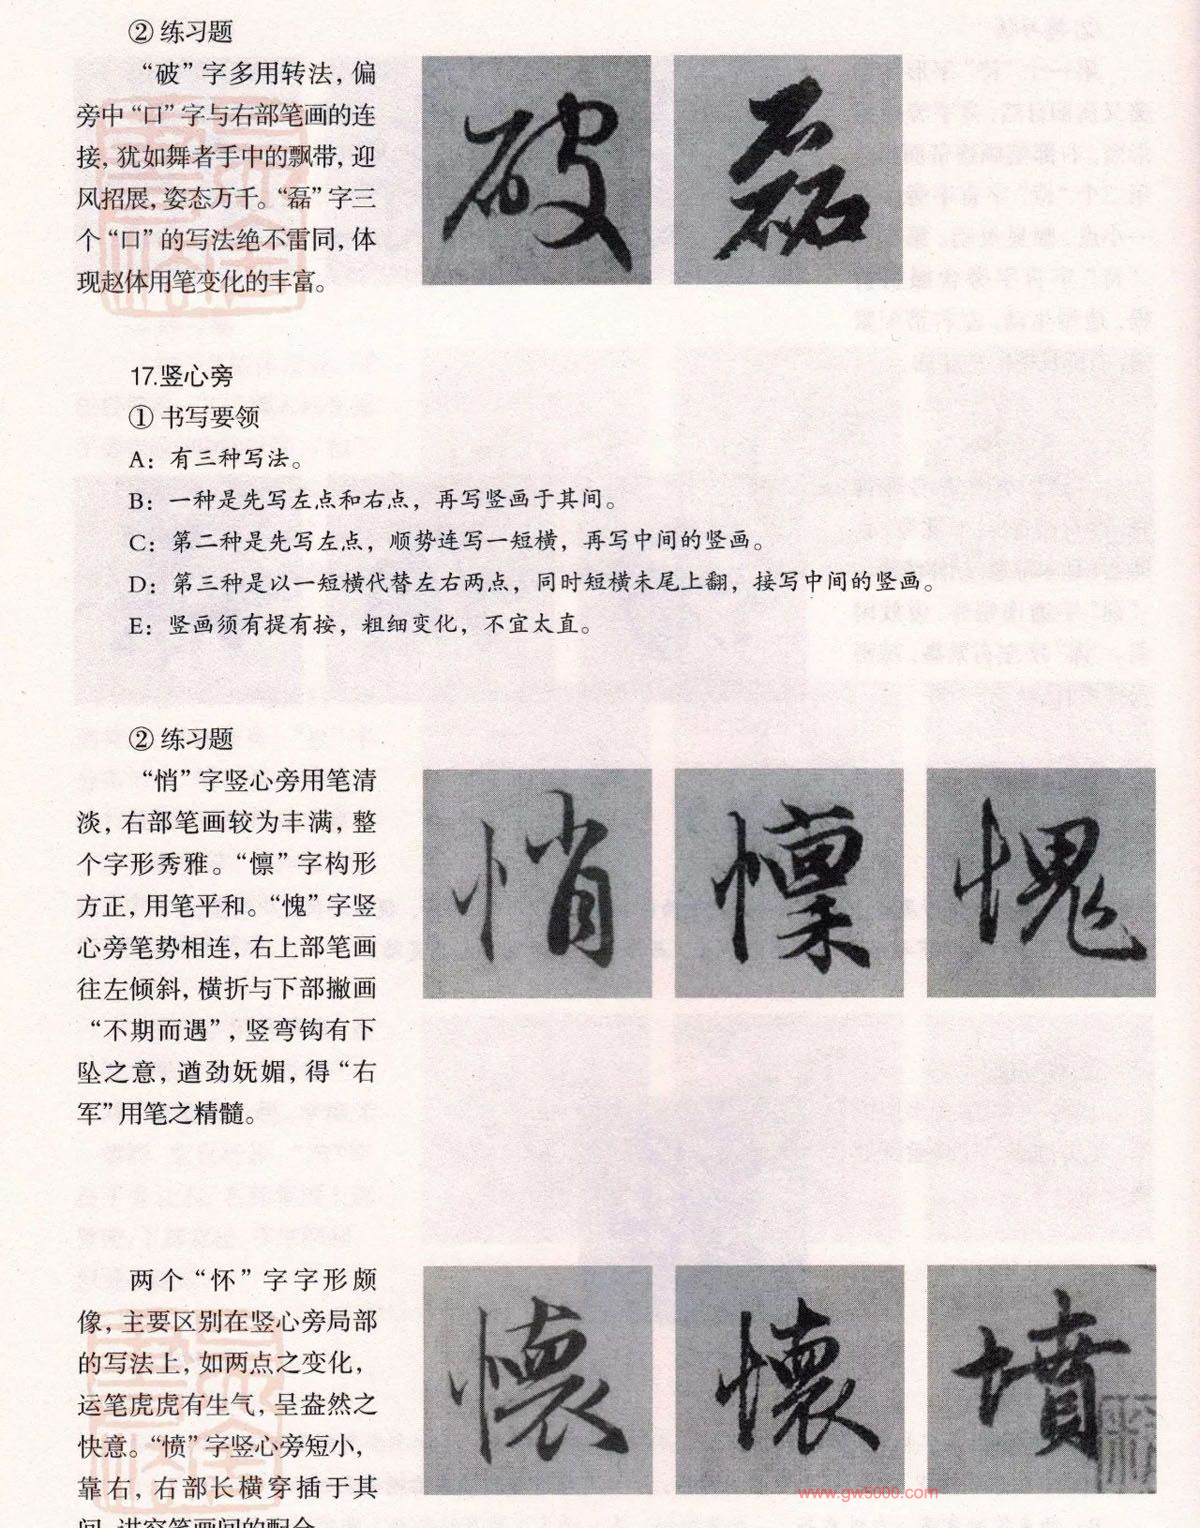 ② 练习题
“破”字多用转法，偏
旁中“口”字与右部笔画的连
接，犹如舞者手中的飘带，迎
风招展，姿态万千。“磊”字三
个“口”的写法绝不雷同，体
现赵体用笔变化的丰富。
破 磊
17.竖心旁
① 书写要领
A：有三种写法。
B：一种是先写左点和右点，再写竖画于其间。
C：第二种是先写左点，顺势连写一短横，再写中间的竖画。
D：第三种是以一短横代替左右两点，同时短横末尾上翻，接写中间的竖画。
E：竖画须有提有按，粗细变化，不宜太直。
② 练习题
“悄”字竖心旁用笔清
淡，右部笔画较为丰满，整
个字形秀雅。“懔”字构形
方正，用笔平和。“愧”字竖
心旁笔势相连，右上部笔画
往左倾斜，横折与下部撇画
“不期而遇”，竖弯钩有下
坠之意，遒劲妩媚，得“右
军”用笔之精髓。
悄 懔 愧
两个“怀”字字形颇
像，主要区别在竖心旁局部
的写法上，如两点之变化，
运笔虎虎有生气，呈盎然之
快意。“愤”字竖心旁短小，
靠右，右部长横穿插于其
间，讲究笔画间的配合。
懷 懷 憤
www.gw5000.com